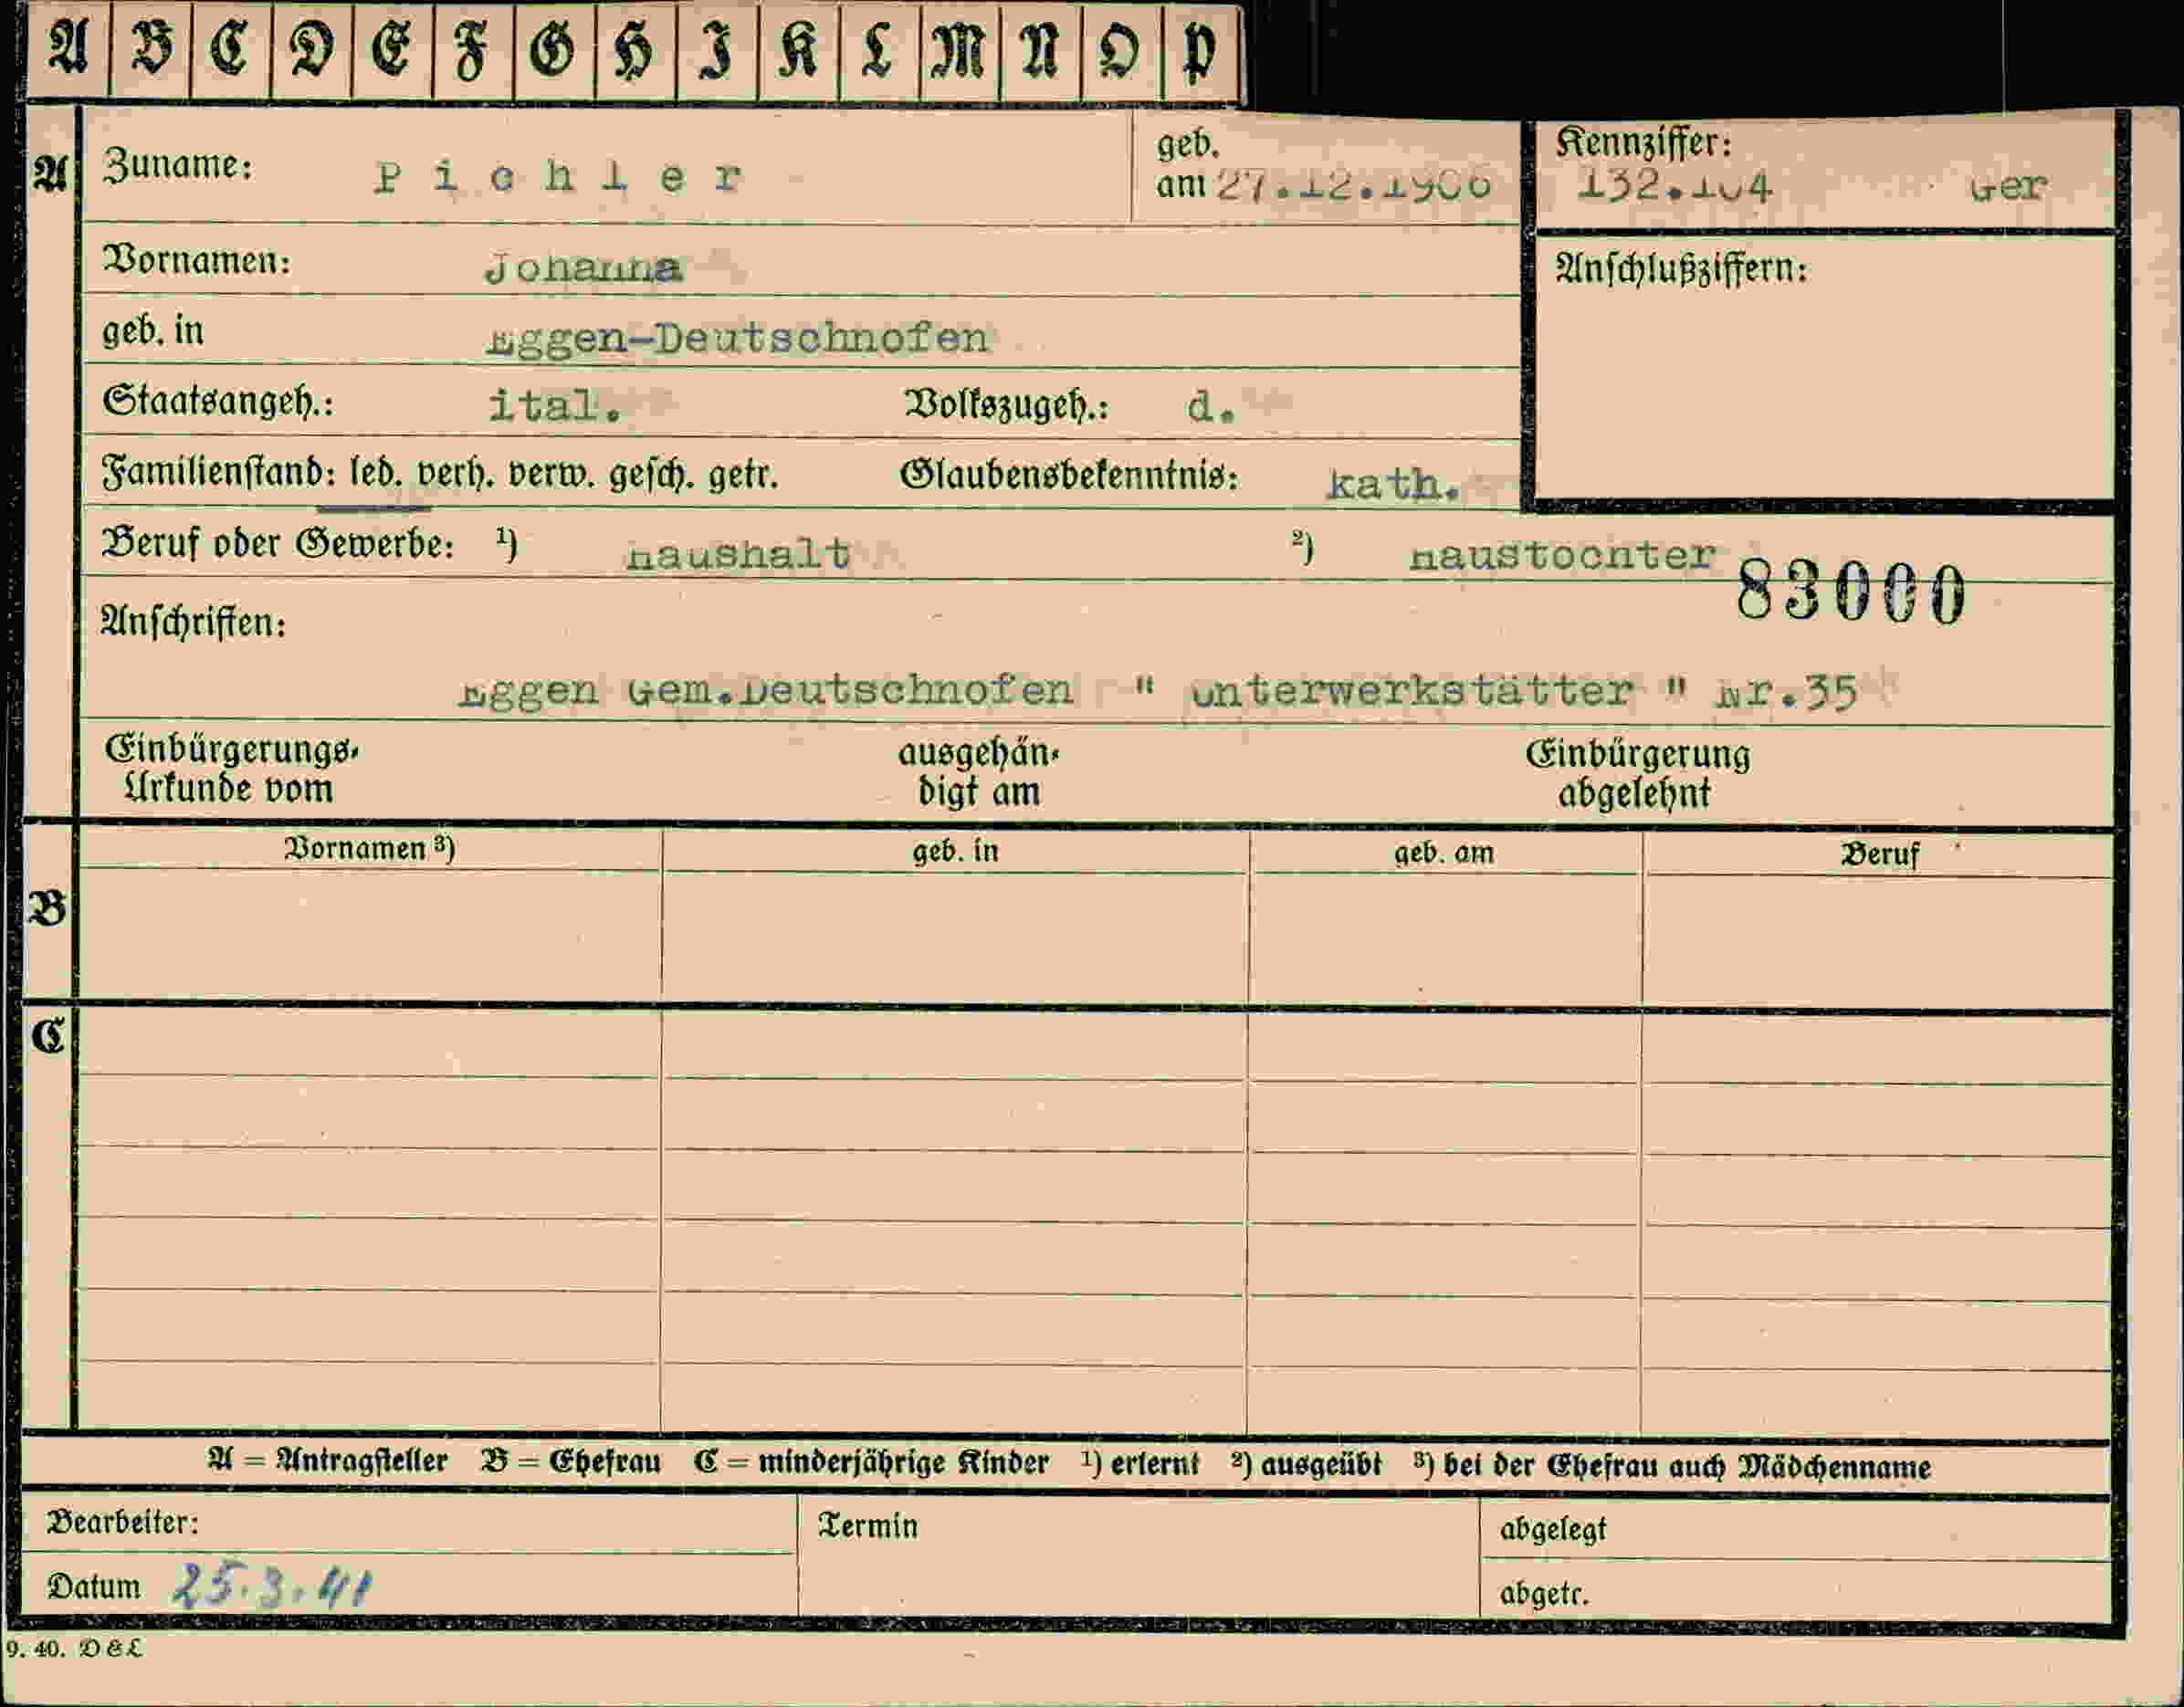 A B C D E F G H I K L M N O P
A Zuname: Pichler geb. am 27.12.1906 Kennziffer: 132.104 Ger
Vornamen: Johanna Anschlußziffern:
geb. in Eggen-Deutschnofen
Staatsangeh.: ital. Volkszugeh.: d.
Familienstand: led. verh. verw. gesch. getr. Glaubensbekenntnis: kath.
Beruf oder Gewerbe: 1) Haushalt 2) Haustochter
83000
Anschriften:
Eggen Gem.Deutschnofen " Unterwerkstätter " Nr.35
Einbürgerungs- ausgehän- Einbürgerung
Urkunde vom digt am abgelehnt
Vornamen 3) geb. in geb. am Beruf
B
C
A = Antragsteller B = Ehefrau C = minderjährige Kinder 1) erlernt 2) ausgeübt 3) bei der Ehefrau auch Mädchenname
Bearbeiter: Termin abgelegt
Datum 25.3.41 abgetr.
9. 40. D & L